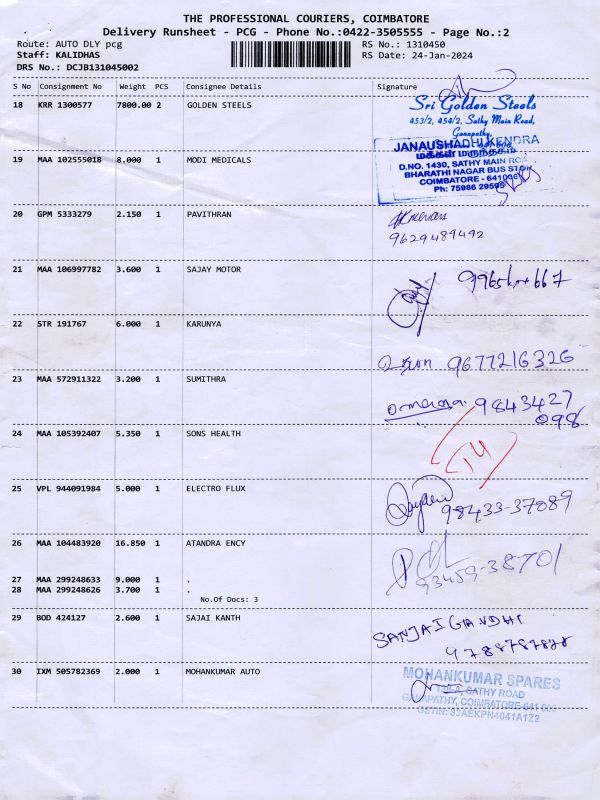 THE PROFESSIONAL COURIERS, COIMBATORE
Delivery Runsheet - PCG - Phone No.:0422-3505555 - Page No.:2
Route: AUTO DLY pcg RS No.: 1310450
Staff: KALIDHAS RS Date: 24-Jan-2024
DRS No.: DCJB131045002
S No Consignment No Weight PCS Consignee Details Signature
18 KRR 1300577 7800.00 2 GOLDEN STEELS
Sri Golden Steels
453/2, 454/2, Sathy Main Road,
Ganapathy,
JANAUSHADHI KENDRA
மக்கள் மருந்தகம்
D.NO. 1430, SATHY MAIN
BHARATHI NAGAR BUS STOP
COIMBATORE - 641006
Ph: 75986 29595
19 MAA 102555018 8.000 1 MODI MEDICALS
20 GPM 5333279 2.150 1 PAVITHRAN
9629489492
21 MAA 106997782 3.600 1 SAJAY MOTOR
22 STR 191767 6.000 1 KARUNYA
9677216326
23 MAA 572911322 3.200 1 SUMITHRA
9843427
098
24 MAA 105392407 5.350 1 SONS HEALTH
25 VPL 944091984 5.000 1 ELECTRO FLUX
98433-37089
26 MAA 104483920 16.850 1 ATANDRA ENCY
93459-38701
27 MAA 299248633 9.000 1 .
28 MAA 299248626 3.700 1 .
No.Of Docs: 3
29 BOD 424127 2.600 1 SAJAI KANTH
SANJAI GANDHI
30 IXM 505782369 2.000 1 MOHANKUMAR AUTO
MOHANKUMAR SPARES
SATHY ROAD
GANAPATHY, COIMBATORE-641 006
GSTIN: 33AEKPN4041A1Z2